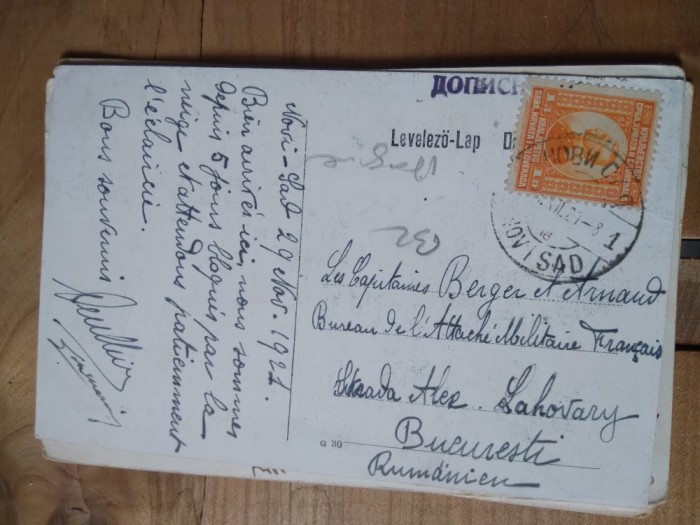 ДОПИС
Levelező-Lap
Novi-Sad 29 Nov. 1921
Bien arrivés ici, nous sommes
depuis 5 jours bloqués par la
neige et attendons patiemment
l'éclaircie.
Bons souvenirs
Les Capitaines Berger et Arnaud
Bureau de l'Attaché Militaire Français
Strada Alex. Lahovary
Bucuresti
Rumänien
G 30
NOVI SAD
1